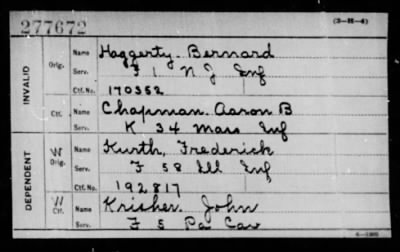 277672 (3-H-4)
INVALID Orig. Name Haggerty. Bernard
Serv. F 1 N J Inf
Ctf. No. 170352
Ctf. Name Chapman. Aaron B
Serv. K 34 Mass Inf
DEPENDENT W Orig. Name Kurth, Frederick
Serv. F 58 Ill Inf
Ctf. No. 192817
W Ctf. Name Krisher. John
Serv. F 5 Pa Cav